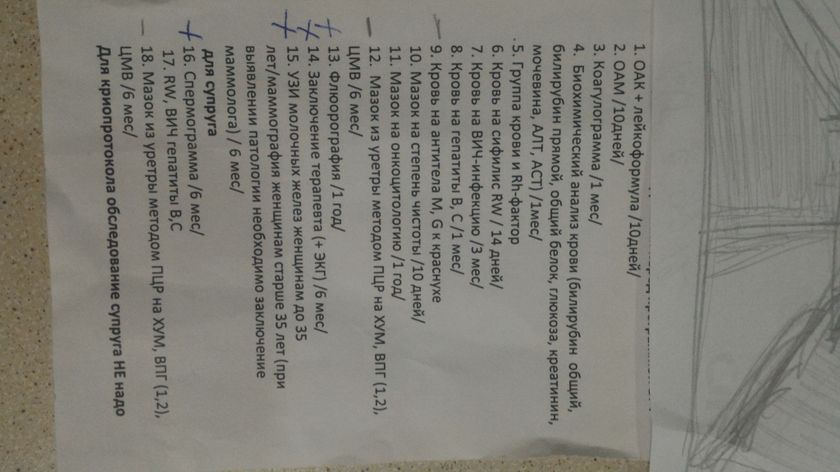 1. ОАК + лейкоформула /10дней/
2. ОАМ /10дней/
3. Коагулограмма /1 мес/
4. Биохимический анализ крови (билирубин общий,
билирубин прямой, общий белок, глюкоза, креатинин,
мочевина, АЛТ, АСТ) /1мес/
5. Группа крови и Rh-фактор
6. Кровь на сифилис RW / 14 дней/
7. Кровь на ВИЧ-инфекцию /3 мес/
8. Кровь на гепатиты В, С /1 мес/
9. Кровь на антитела M, G к краснухе
10. Мазок на степень чистоты /10 дней/
11. Мазок на онкоцитологию /1 год/
12. Мазок из уретры методом ПЦР на ХУМ, ВПГ (1,2),
ЦМВ /6 мес/
13. Флюорография /1 год/
14. Заключение терапевта (+ ЭКГ) /6 мес/
15. УЗИ молочных желез женщинам до 35
лет/маммография женщинам старше 35 лет (при
выявлении патологии необходимо заключение
маммолога) / 6 мес/
для супруга
16. Спермограмма /6 мес/
17. RW, ВИЧ гепатиты В,С
18. Мазок из уретры методом ПЦР на ХУМ, ВПГ (1,2),
ЦМВ /6 мес/
Для криопротокола обследование супруга НЕ надо